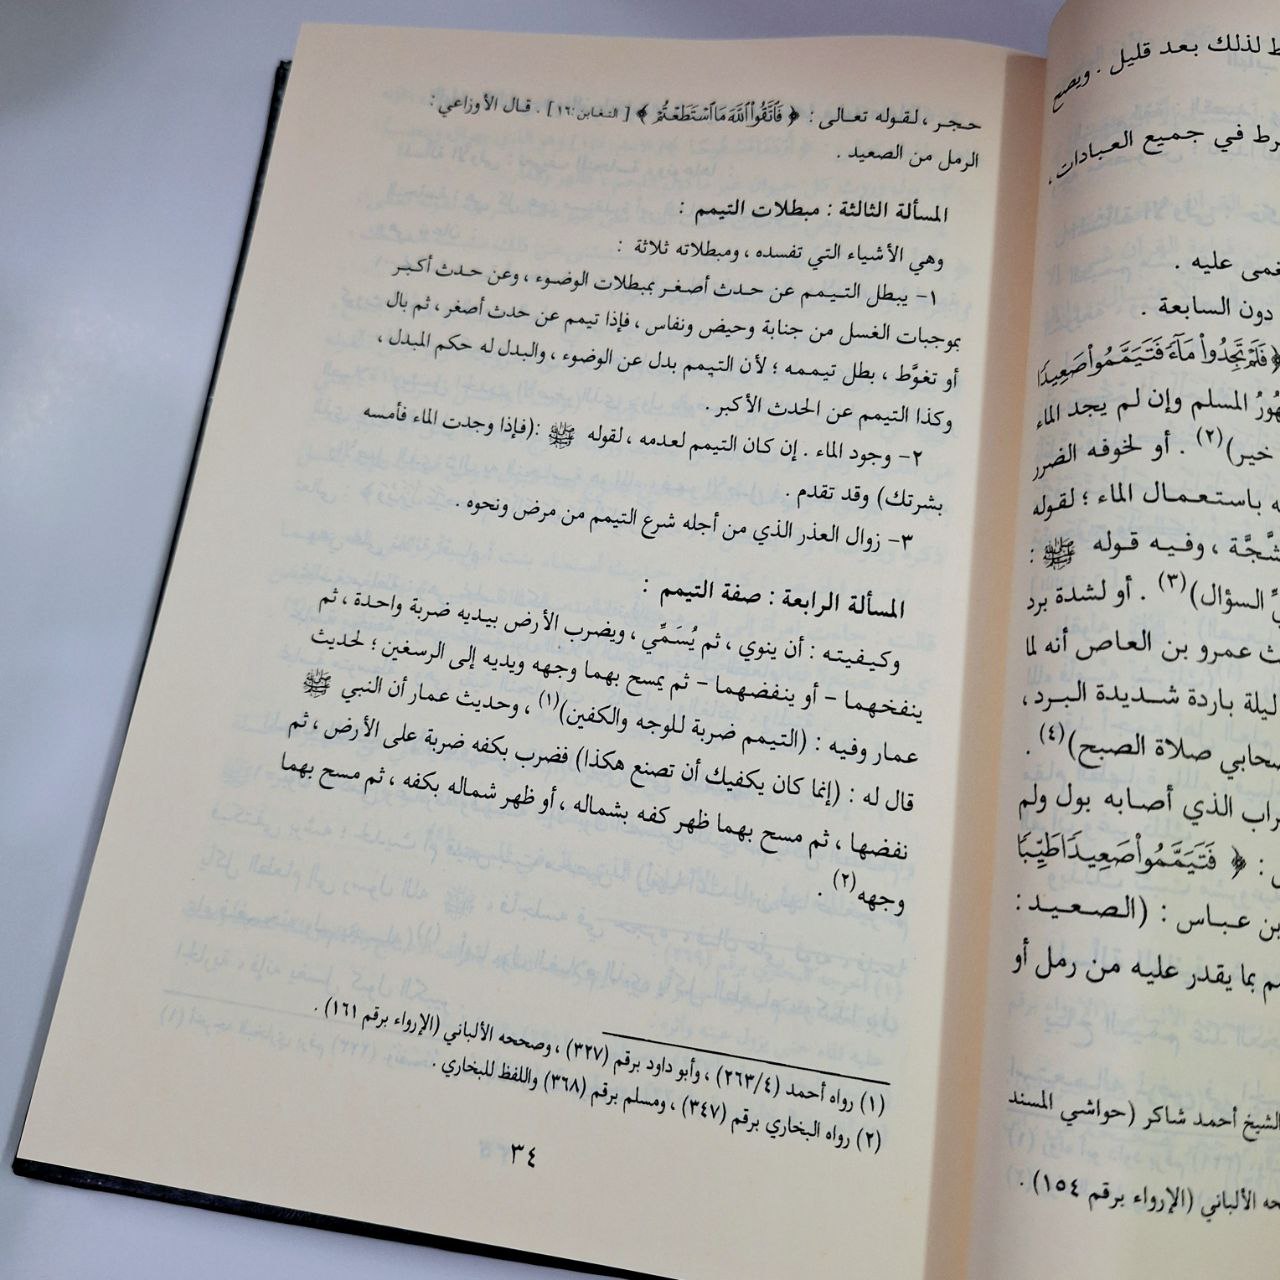 ط لذلك بعد قليل . ويصح
رط في جميع العبادات ،
غمى عليه .
دون السابعة .
﴿فَلَمْ تَجِدُوا۟ مَآءً فَتَيَمَّمُوا۟ صَعِيدًا
هُورُ المسلم وإن لم يجد الماء
خير)(٢) . أو لخوفه الضرر
ه باستعمال الماء ؛ لقوله
شَّجَّة ، وفيه قوله ﷺ :
يِّ السؤال)(٣) . أو لشدة برد
ث عمرو بن العاص أنه لما
ليلة باردة شديدة البرد ،
صحابي صلاة الصبح)(٤) .
راب الذي أصابه بول ولم
: ﴿ فَتَيَمَّمُوا۟ صَعِيدًا طَيِّبًا
بن عباس : (الصعيد :
م بما يقدر عليه من رمل أو
الشيخ أحمد شاكر (حواشي المسند
حه الألباني (الإرواء برقم ١٥٤) .
حجر ، لقوله تعالى : ﴿ فَٱتَّقُوا۟ ٱللَّهَ مَا ٱسْتَطَعْتُمْ ﴾ [التغابن:١٦] . قال الأوزاعي :
الرمل من الصعيد .
المسألة الثالثة : مبطلات التيمم :
وهي الأشياء التي تفسده ، ومبطلاته ثلاثة :
١- يبطل التيمم عن حدث أصغر بمبطلات الوضوء ، وعن حدث أكبر
بموجبات الغسل من جنابة وحيض ونفاس ، فإذا تيمم عن حدث أصغر ، ثم بال
أو تغوَّط ، بطل تيممه ؛ لأن التيمم بدل عن الوضوء ، والبدل له حكم المبدل ،
وكذا التيمم عن الحدث الأكبر .
٢- وجود الماء . إن كان التيمم لعدمه ، لقوله ﷺ :(فإذا وجدت الماء فأمسه
بشرتك) وقد تقدم .
٣- زوال العذر الذي من أجله شرع التيمم من مرض ونحوه .
المسألة الرابعة : صفة التيمم :
وكيفيته : أن ينوي ، ثم يُسَمِّي ، ويضرب الأرض بيديه ضربة واحدة ، ثم
ينفخهما - أو ينفضهما - ثم يمسح بهما وجهه ويديه إلى الرسغين ؛ لحديث
عمار وفيه : (التيمم ضربة للوجه والكفين)(١) ، وحديث عمار أن النبي ﷺ
قال له : (إنما كان يكفيك أن تصنع هكذا) فضرب بكفه ضربة على الأرض ، ثم
نفضها ، ثم مسح بهما ظهر كفه بشماله ، أو ظهر شماله بكفه ، ثم مسح بهما
وجهه(٢) .
(١) رواه أحمد (٢٦٣/٤) ، وأبو داود برقم (٣٢٧) ، وصححه الألباني (الإرواء برقم ١٦١) .
(٢) رواه البخاري برقم (٣٤٧) ، ومسلم برقم (٣٦٨) واللفظ للبخاري .
٣٤